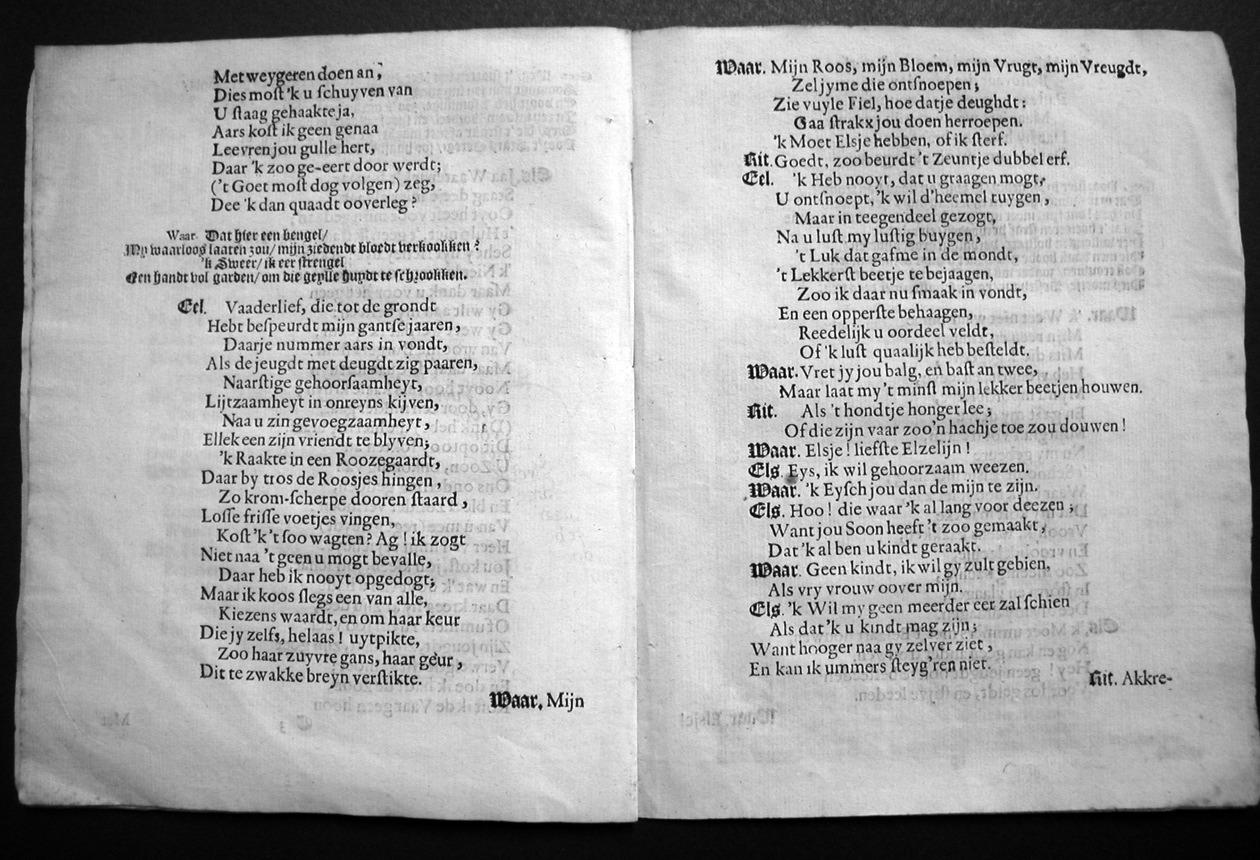 Met weygeren doen an;
Dies moſt 'k u ſchuyven van
U ſtaag gehaakte ja,
Aars koſt ik geen genaa
Leevren jou gulle hert,
Daar 'k zoo ge-eert door werdt;
('t Goet moſt dog volgen) zeg,
Dee 'k dan quaadt ooverleg?
Waar. Dat hier een bengel/
My waarloos laaten zou/ mijn ziedendt bloedt verkookken?
'k Sweer/ ik eer ſtrengel
Een handt vol garden/ om die geylle huydt te ſchrookken.
Eel. Vaaderlief, die tot de grondt
Hebt beſpeurdt mijn gantſe jaaren,
Daarje nummer aars in vondt,
Als de jeugdt met deugdt zig paaren,
Naarſtige gehoorſaamheyt,
Lijtzaamheyt in onreyns kijven,
Naa u zin gevoegzaamheyt,
Ellek een zijn vriendt te blyven;
'k Raakte in een Roozegaardt,
Daar by tros de Roosjes hingen,
Zo krom-ſcherpe dooren ſtaard,
Loſſe friſſe voetjes vingen,
Koſt 'k 't ſoo wagten? Ag! ik zogt
Niet naa 't geen u mogt bevalle,
Daar heb ik nooyt opgedogt;
Maar ik koos ſlegs een van alle,
Kiezens waardt, en om haar keur
Die jy zelfs, helaas! uytpikte,
Zoo haar zuyvre gans, haar geur,
Dit te zwakke breyn verſtikte.
Waar. Mijn
Waar. Mijn Roos, mijn Bloem, mijn Vrugt, mijn Vreugdt,
Zel jy me die ontſnoepen;
Zie vuyle Fiel, hoe datje deughdt:
Gaa ſtrakx jou doen herroepen.
'k Moet Elsje hebben, of ik ſterf.
Rit. Goedt, zoo beurdt 't Zeuntje dubbel erf.
Eel. 'k Heb nooyt, dat u graagen mogt,
U ontſnoept, 'k wil d'heemel tuygen,
Maar in teegendeel gezogt,
Na u luſt my luſtig buygen,
't Luk dat gafme in de mondt,
't Lekkerſt beetje te bejaagen,
Zoo ik daar nu ſmaak in vondt,
En een opperſte behaagen,
Reedelijk u oordeel veldt,
Of 'k luſt quaalijk heb beſteldt.
Waar. Vret jy jou balg, en baſt an twee,
Maar laat my 't minſt mijn lekker beetjen houwen.
Rit. Als 't hondtje honger lee;
Of die zijn vaar zoo'n hachje toe zou douwen!
Waar. Elsje! liefſte Elzelijn!
Els. Eys, ik wil gehoorzaam weezen.
Waar. 'k Eyſch jou dan de mijn te zijn.
Els. Hoo! die waar 'k al lang voor deezen;
Want jou Soon heeft 't zoo gemaakt,
Dat 'k al ben u kindt geraakt.
Waar. Geen kindt, ik wil gy zult gebien,
Als vry vrouw oover mijn.
Els. 'k Wil my geen meerder eer zal ſchien
Als dat 'k u kindt mag zijn;
Want hooger naa gy zelver ziet,
En kan ik ummers ſteyg'ren niet.
Rit. Akkre-